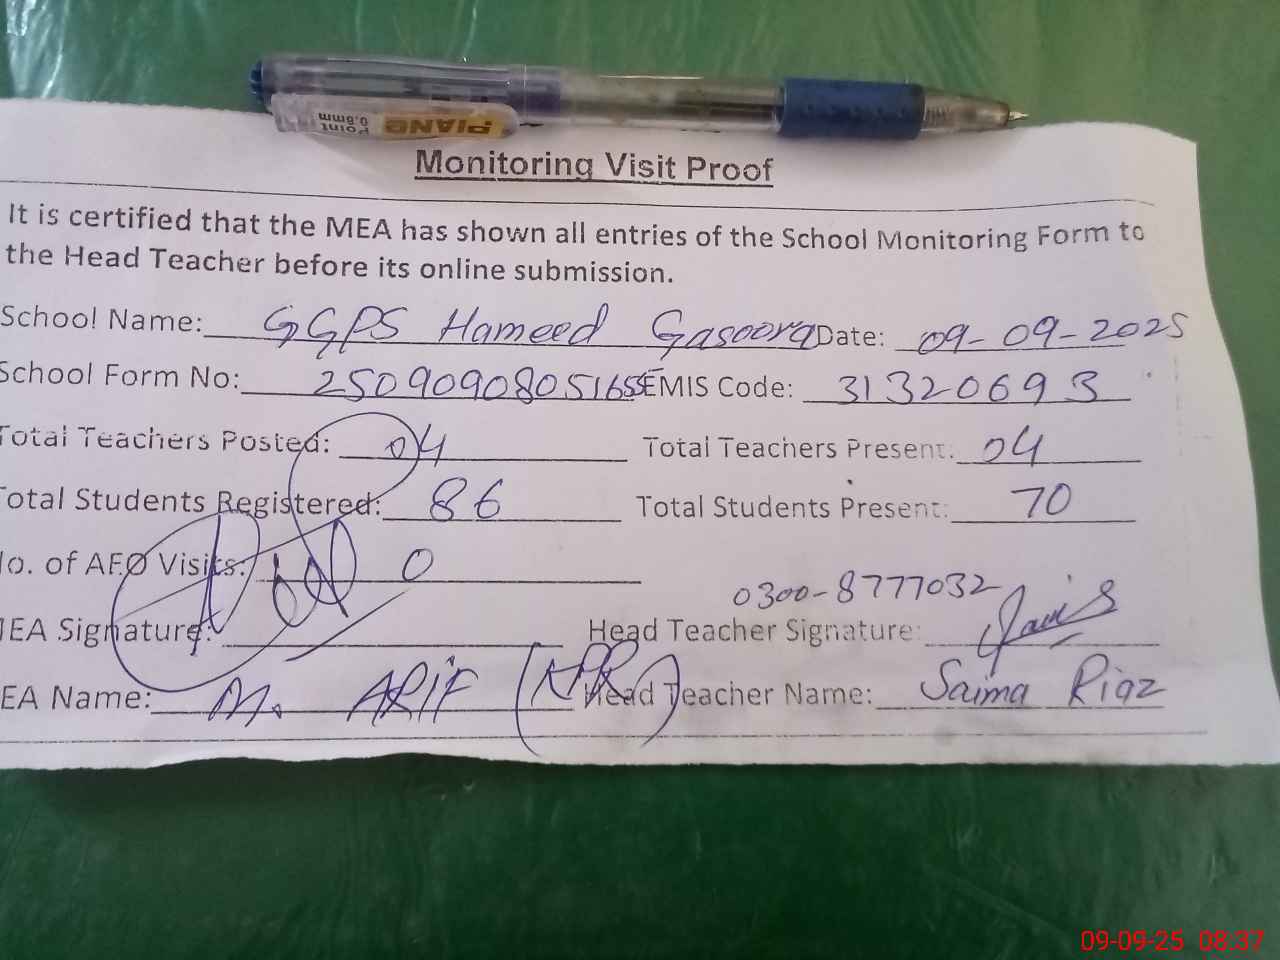 PIANO
Point
0.8mm
Monitoring Visit Proof
It is certified that the MEA has shown all entries of the School Monitoring Form to
the Head Teacher before its online submission.
School Name: GGPS Hameed Gasoora Date: 09-09-2025
School Form No: EMIS Code: 31320693
Total Teachers Posted: 04 Total Teachers Present: 04
Total Students Registered: 86 Total Students Present: 70
No. of AEO Visits: 0
0300-8777032
MEA Signature: Head Teacher Signature:
MEA Name: M. ARIF Head Teacher Name: Saima Riaz
09-09-25 08:37